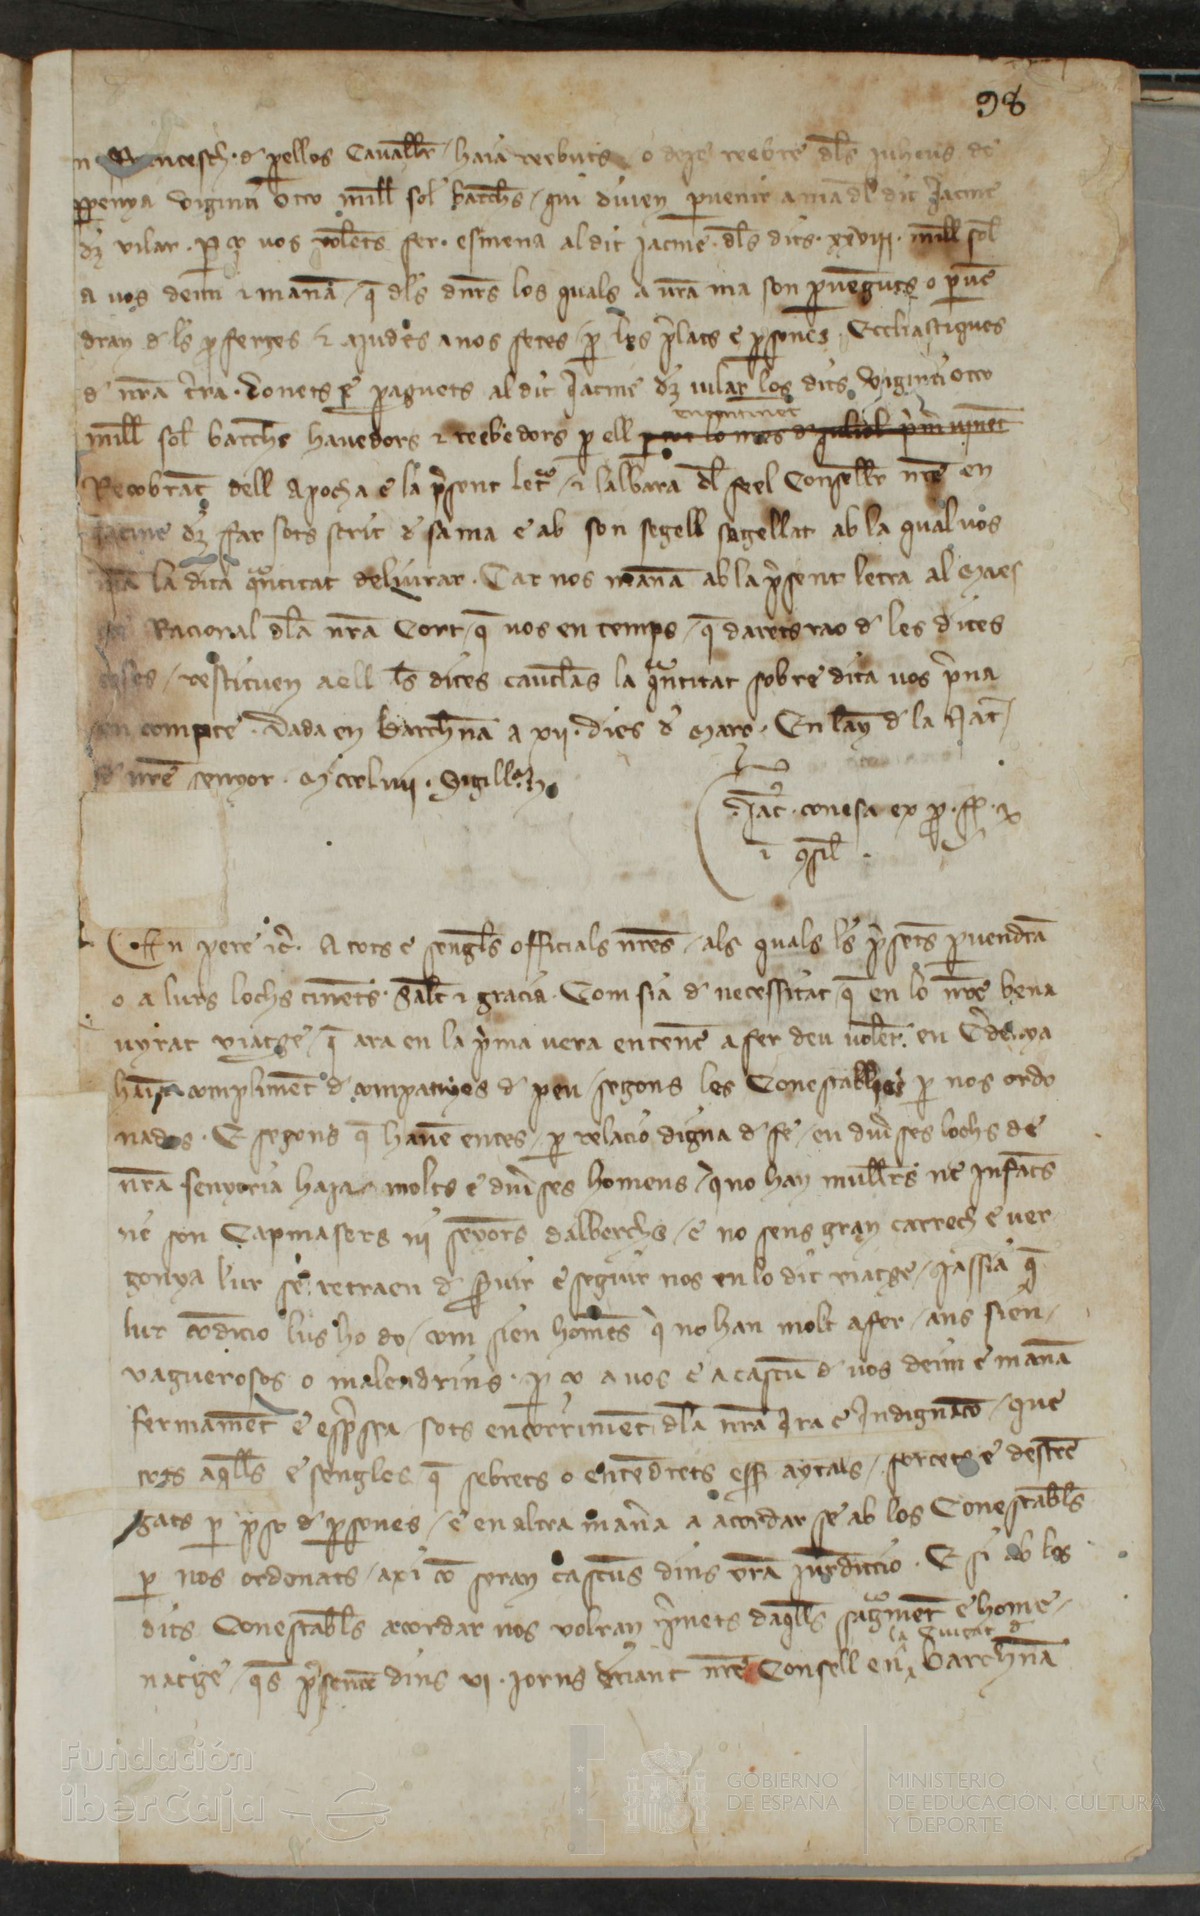 98
n Francesch. d perellos Cavaller / haia reebuts o deje reebre dls juheus de
perpenya viginti Octo mill sol barchs / qui diuen pervenir a ma dl dit Jacme
dz vilar. per ço nos volents fer. esmena al dit Jacme. dls dits. xxviii. mill sol
a vos deim i manam / q dls diners los quals a vra ma son pervenguts o perve
dran d ls proferges & ajudes a nos fetes / per los prelats e persones. Ecclesiastiques
d nra terra. donets e paguets al dit Jacme dz vilar los dits. Viginti octo
encontinet
mill sol barchs havedors & reebedors per ell per tot lo mes d juliol primer vinent
Recobrant dell Apocha e la present letra / i lalbara dl feel Conseller nre en
Jacme dz ffar sots scrit d sa ma e ab son segell sagellat ab la qual vos
la dita quantitat deliurar. Car nos manam ab la present letra al Maes
Racional dla nra Cort / q vos en temps / q darets rao d les dites
coses / restituen a ell ls dites cauteles la quantitat sobre dita vos prena
en compte. Dada en Barchna a xii. dies d Marc. En lay d la Nat
d nre senyor. Mcccliiii. Sigill
Jac. conesa ex p.
i qsil.
En pere ic. A tots e sengles officials nres / als quals ls presents pervendra
o a lurs lochs tinents. Salut & gracia. Com sia d necessitat q en lo nre bena
uyrat viatge / q ara en la prima vera entenem a fer deu volent. en Cerdenya
haia compliment d companyes d peu / segons les Conestablies per nos ordo
nades. E segons q havem entes / per relacio digna d fe / en diverses lochs de
nra senyoria haja molts e diverses homens / q no han mullers ne Infants
ne son Capmasers ni senyors dalberchs / e no sens gran carrech e ver
gonya lur se retraen d servir e seguir nos en lo dit viatge / jassia q
lur condicio lus ho do / com sien homens q no han molt afer / ans sien
vaguerosos o malendrins. per ço a vos e a cascu d vos deim e manam
fermament e espressa / sots encorriment dla nra Ira e Indignacio / que
tots aqlls e sengles q sebrets o entendrets esser aytals / forcets e destre
gats per preso d persones / e en altra manera a acordar se ab los Conestabls
per nos ordenats / axi com seran cascuns dins vra Jurdiccio. E si ab los
dits Conestabls acordar nos volran prenets daqlls sagrament e home
la Ciutat d
natge / qs presenten dins vi. jorns deuant nre Consell en Barchna
Fundación
iberCaja
GOBIERNO
DE ESPAÑA
MINISTERIO
DE EDUCACIÓN, CULTURA
Y DEPORTE